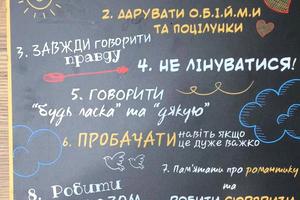 2. ДАРУВАТИ О.Б.І.Й.М.И
ТА ПОЦІЛУНКИ
3. ЗАВЖДИ ГОВОРИТИ
правду
4. НЕ ЛІНУВАТИСЯ!
5. ГОВОРИТИ
"будь ласка" та "дякую"
6. ПРОБАЧАТИ навіть якщо
це дуже важко
7. Пам'ятати про романтику
та
8. Робити
РОБИТИ СЮРПРИЗИ